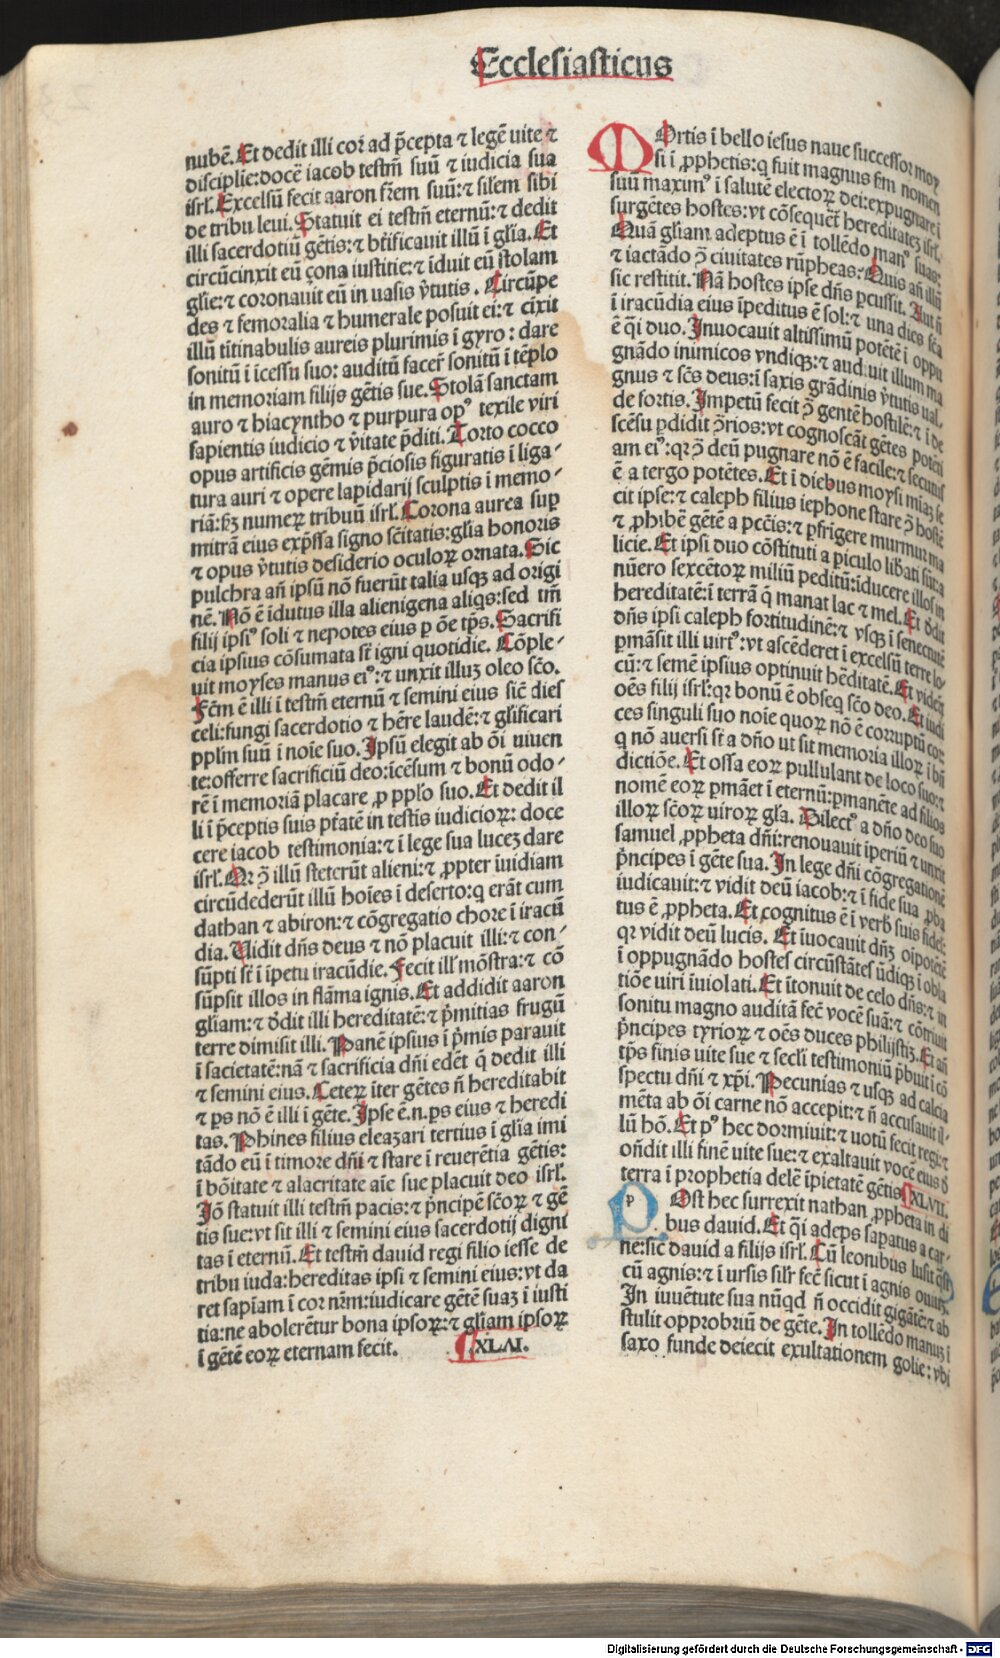 Ecclesiasticus
nubē. Et dedit illi corā ad p̄cepta ⁊ legē uite ⁊
discipline: docē iacob testm̄ suū ⁊ iudicia sua
isrl̄. Excelsū fecit aaron fr̄em suū: ⁊ sil̄em sibi
de tribu leui. Statuit ei testm̄ eternū: ⁊ dedit
illi sacerdotiū gētis: ⁊ bt̄ificauit illū ī gl̄ia. Et
circūcinxit eū çona iustitie: ⁊ īduit eū stolam
gl̄ie: ⁊ coronauit eū in uasis v̄tutis. Circūpe
des ⁊ femoralia ⁊ humerale posuit ei: ⁊ cīxit
illū tītinabulis aureis plurimis ī gyro: dare
sonitū ī īcessu suo: auditū facer̄ sonitū ī tēplo
in memoriam filijs gētis sue. Stolā sanctam
auro ⁊ hiacyntho ⁊ purpura opꝰ texile viri
sapientis iudicio ⁊ v̄itate p̄diti. Torto cocco
opus artificis gēmis p̄ciosis figuratis ī liga⸗
tura auri ⁊ opere lapidarij sculptis ī memo⸗
riā: fꝫ numeꝝ tribuū isrl̄. Corona aurea suꝑ
mitrā eius exp̄ssa signo sc̄itatis: gl̄ia honoris
⁊ opus v̄tutis desiderio oculoꝝ ornata. Sic
pulchra an̄ ipsū nō fuerūt talia usqꝫ ad origi
nē. Nō ē īdutus illa alienigena aliqs: sed tm̄
filij ipsiꝰ soli ⁊ nepotes eius ꝑ ōe tp̄s. Sacrifi
cia ipsius cōsumata st̄ igni quotidie. Cōple⸗
uit moyses manus eiꝰ: ⁊ unxit illuꝫ oleo sc̄o.
Fc̄m ē illi ī testm̄ eternū ⁊ semini eius sic̄ dies
celi: fungi sacerdotio ⁊ hēre laudē: ⁊ gl̄ificari
ppl̄m suū ī noīe suo. Ipsū elegit ab ōi uiuen
te: offerre sacrificiū deo: īcēsum ⁊ bonū odo⸗
rē ī memoriā placare ꝓ ppl̄o suo. Et dedit il
li ī p̄ceptis suis pt̄atē in testis iudicioꝝ: doce
cere iacob testimonia: ⁊ ī lege sua luceꝫ dare
isrl̄. Qr ꝯ̄ illū steterūt alieni: ⁊ ꝓpter īuidiam
circūdederūt illū hoīes ī deserto: q̄ erāt cum
dathan ⁊ abiron: ⁊ cōgregatio chore ī iracū
dia. Vidit dn̄s deus ⁊ nō placuit illi: ⁊ con⸗
sūpti st̄ ī īpetu iracūdie. Fecit ill' mōstra: ⁊ cō
sūpsit illos in flāma ignis. Et addidit aaron
gl̄iam: ⁊ d̄dit illi hereditatē: ⁊ p̄mitias frugū
terre dimisit illi. Panē ipsius ī p̄mis parauit
ī sacietatē: nā ⁊ sacrificia dn̄i edēt q̄ dedit illi
⁊ semini eius. Ceteꝝ īter gētes n̄ hereditabit
⁊ ps nō ē illi ī gēte. Ipse ē.n. ps eius ⁊ heredi
tas. Phines filius eleaçari tertius ī gl̄ia imi
tādo eū ī timore dn̄i ⁊ stare ī reuerētia gētis:
ī bōitate ⁊ alacritate aīe sue placuit deo isrl̄.
Iō statuit illi testm̄ pacis: ⁊ p̄ncipē sc̄oꝝ ⁊ gē
tis sue: vt sit illi ⁊ semini eius sacerdotij digni
tas ī eternū. Et testm̄ dauid regi filio iesse de
tribu iuda: hereditas ipsi ⁊ semini eius: vt da
ret sapīam ī cor nr̄m: iudicare gētē suaꝫ ī iusti
tia: ne abolerētur bona ipsoꝝ: ⁊ gl̄iam ipsoꝝ
ī gētē eoꝝ eternam fecit. XLVI.
MOrtis ī bello iesus naue successor moy
si ī ꝓphetis: q fuit magnus fm̄ nomen
suū maximꝰ ī salutē electoꝝ dei: expugnare ī
surgētes hostes: vt cōsequēt̄ hereditateꝫ isrl̄.
Quā gl̄iam adeptus ē ī tollēdo manꝰ suas:
⁊ iactādo ꝯ̄ ciuitates rūpheas: Quis an̄ illū
sic restitit. Nā hostes ipse dn̄s ꝑcussit. Aut n̄
ī iracūdia eius īpeditus ē sol: ⁊ una dies fc̄a
ē q̄i duo. Inuocauit altissimū potētē ī oppu
gnādo inimicos vndiqꝫ: ⁊ audiuit illum ma
gnus ⁊ sc̄s deus: ī saxis grādinis v̄tutis ual
de fortis. Impetū fecit ꝯ̄ gentē hostilē: ⁊ ī de
scēsu ꝑdidit ꝯ̄rios: vt cognoscāt gētes potēti
am eiꝰ: qr ꝯ̄ deū pugnare nō ē facile: ⁊ secutus
ē a tergo potētes. Et ī diebus moysi miaꝫ fe
cit ipse: ⁊ caleph filius iephone stare ꝯ̄ hostē
⁊ ꝓhibē gētē a pcc̄is: ⁊ ꝑfrigere murmur ma
licie. Et ipsi duo cōstituti a ꝑiculo lib̄ati sūt: a
nūero sexcētoꝝ miliū peditū: īducere illos in
hereditatē: ī terrā q̄ manat lac ⁊ mel. Et d̄dit
dn̄s ipsi caleph fortitudinē: ⁊ vsqꝫ ī senectutē
ꝑmāsit illi uirtꝰ: vt ascēderet ī excelsū terre lo⸗
cū: ⁊ semē ipsius optinuit hēditatē. Et viderēt
oēs filij isrl̄: qr bonū ē obseq sc̄o deo. Et iudi
ces singuli suo noīe quoꝝ nō ē corruptū cor:
q nō auersi st̄ a dn̄o ut sit memoria illoꝝ ī bn̄
dictiōe. Et ossa eoꝝ pullulant de loco suo: ⁊
nomē eoꝝ ꝑmāet ī eternū: ꝑmanēte ad filios
illoꝝ sc̄oꝝ uiroꝝ gl̄a. Dilectꝰ a dn̄o deo suo
samuel ꝓpheta dn̄i: renouauit īperiū ⁊ unxit
p̄ncipes ī gēte sua. In lege dn̄i cōgregationē
iudicauit: ⁊ vidit deū iacob: ⁊ ī fide sua ꝓba
tus ē ꝓpheta. Et cognitus ē ī verb̄ suis fidel:
qr vidit deū lucis. Et īuocauit dn̄ꝫ oīpotētē
ī oppugnādo hostes circūstātes ūdiqꝫ ī obla
tiōe uiri īuiolati. Et ītonuit de celo dn̄s: ⁊ in
sonitu magno auditā fec̄ vocē suā: ⁊ cōtriuit
p̄ncipes tyrioꝝ ⁊ oēs duces philijstiꝫ. Et an̄
tp̄s finis uite sue ⁊ secl̄i testimoniū p̄buit ī cō
spectu dn̄i ⁊ xp̄i. Pecunias ⁊ usqꝫ ad calcia
mēta ab ōi carne nō accepit: ⁊ n̄ accusauit il⸗
lū hō. Et pꝰ hec dormiuit: ⁊ uotū fecit regi: ⁊
on̄dit illi finē uite sue: ⁊ exaltauit vocē eius d̄
terra ī prophetia delē īpietatē gētis. XLVII.
POst hec surrexit nathan ꝓpheta in di
bus dauid. Et q̄i adeps saꝑatus a car⸗
ne: sic dauid a filijs isrl̄. Cū leonibus lusit q̄si
cū agnis: ⁊ ī ursis silr̄ fec̄ sicut ī agnis ouiuꝫ.
In iuuētute sua nūqd n̄ occidit gigātē: ⁊ ab
stulit opprobriū de gēte. In tollēdo manuꝫ ī
saxo funde deiecit exultationem golie: vbi
Digitalisierung gefördert durch die Deutsche Forschungsgemeinschaft - DFG